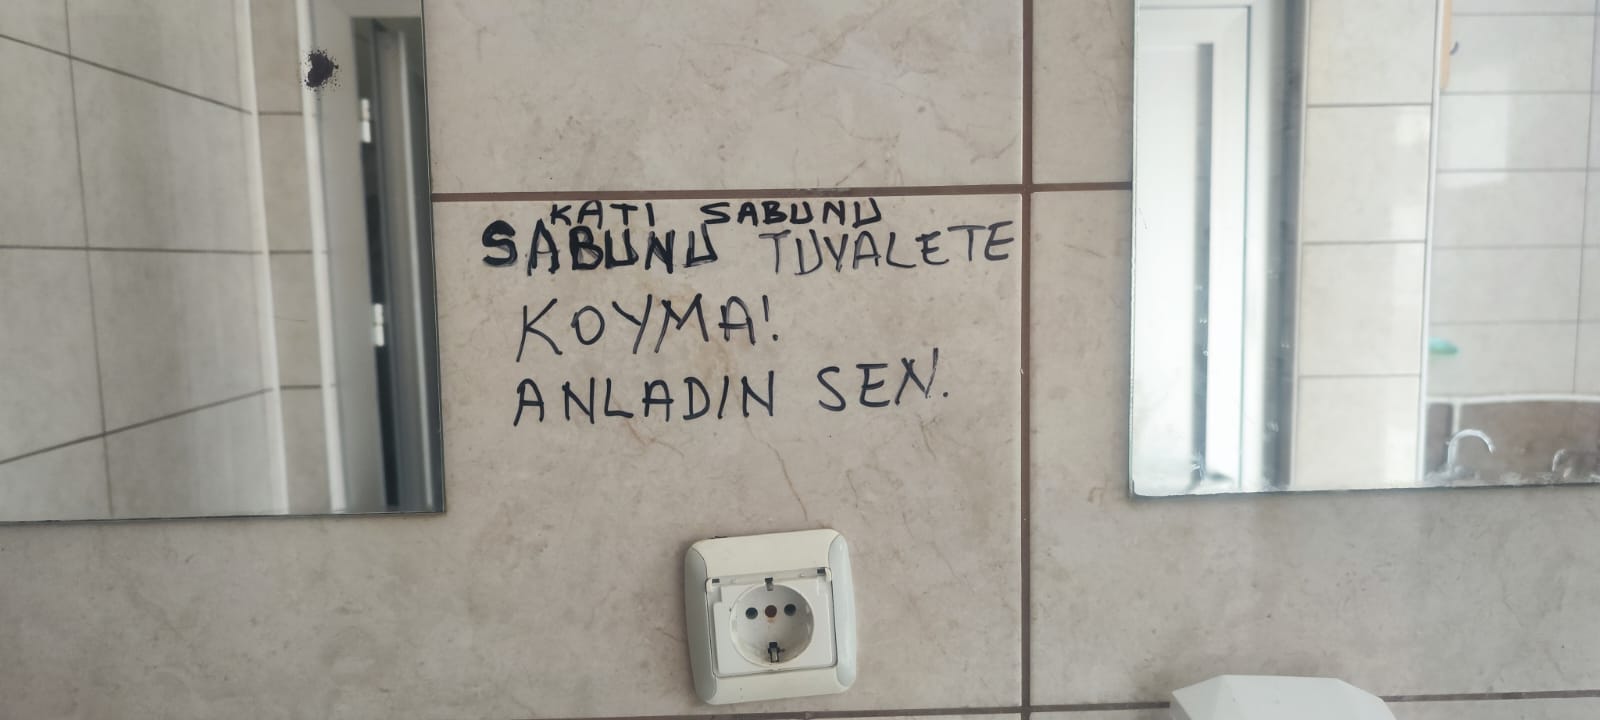 KATI SABUNU
SABUNU TUVALETE
KOYMA!
ANLADIN SEN.